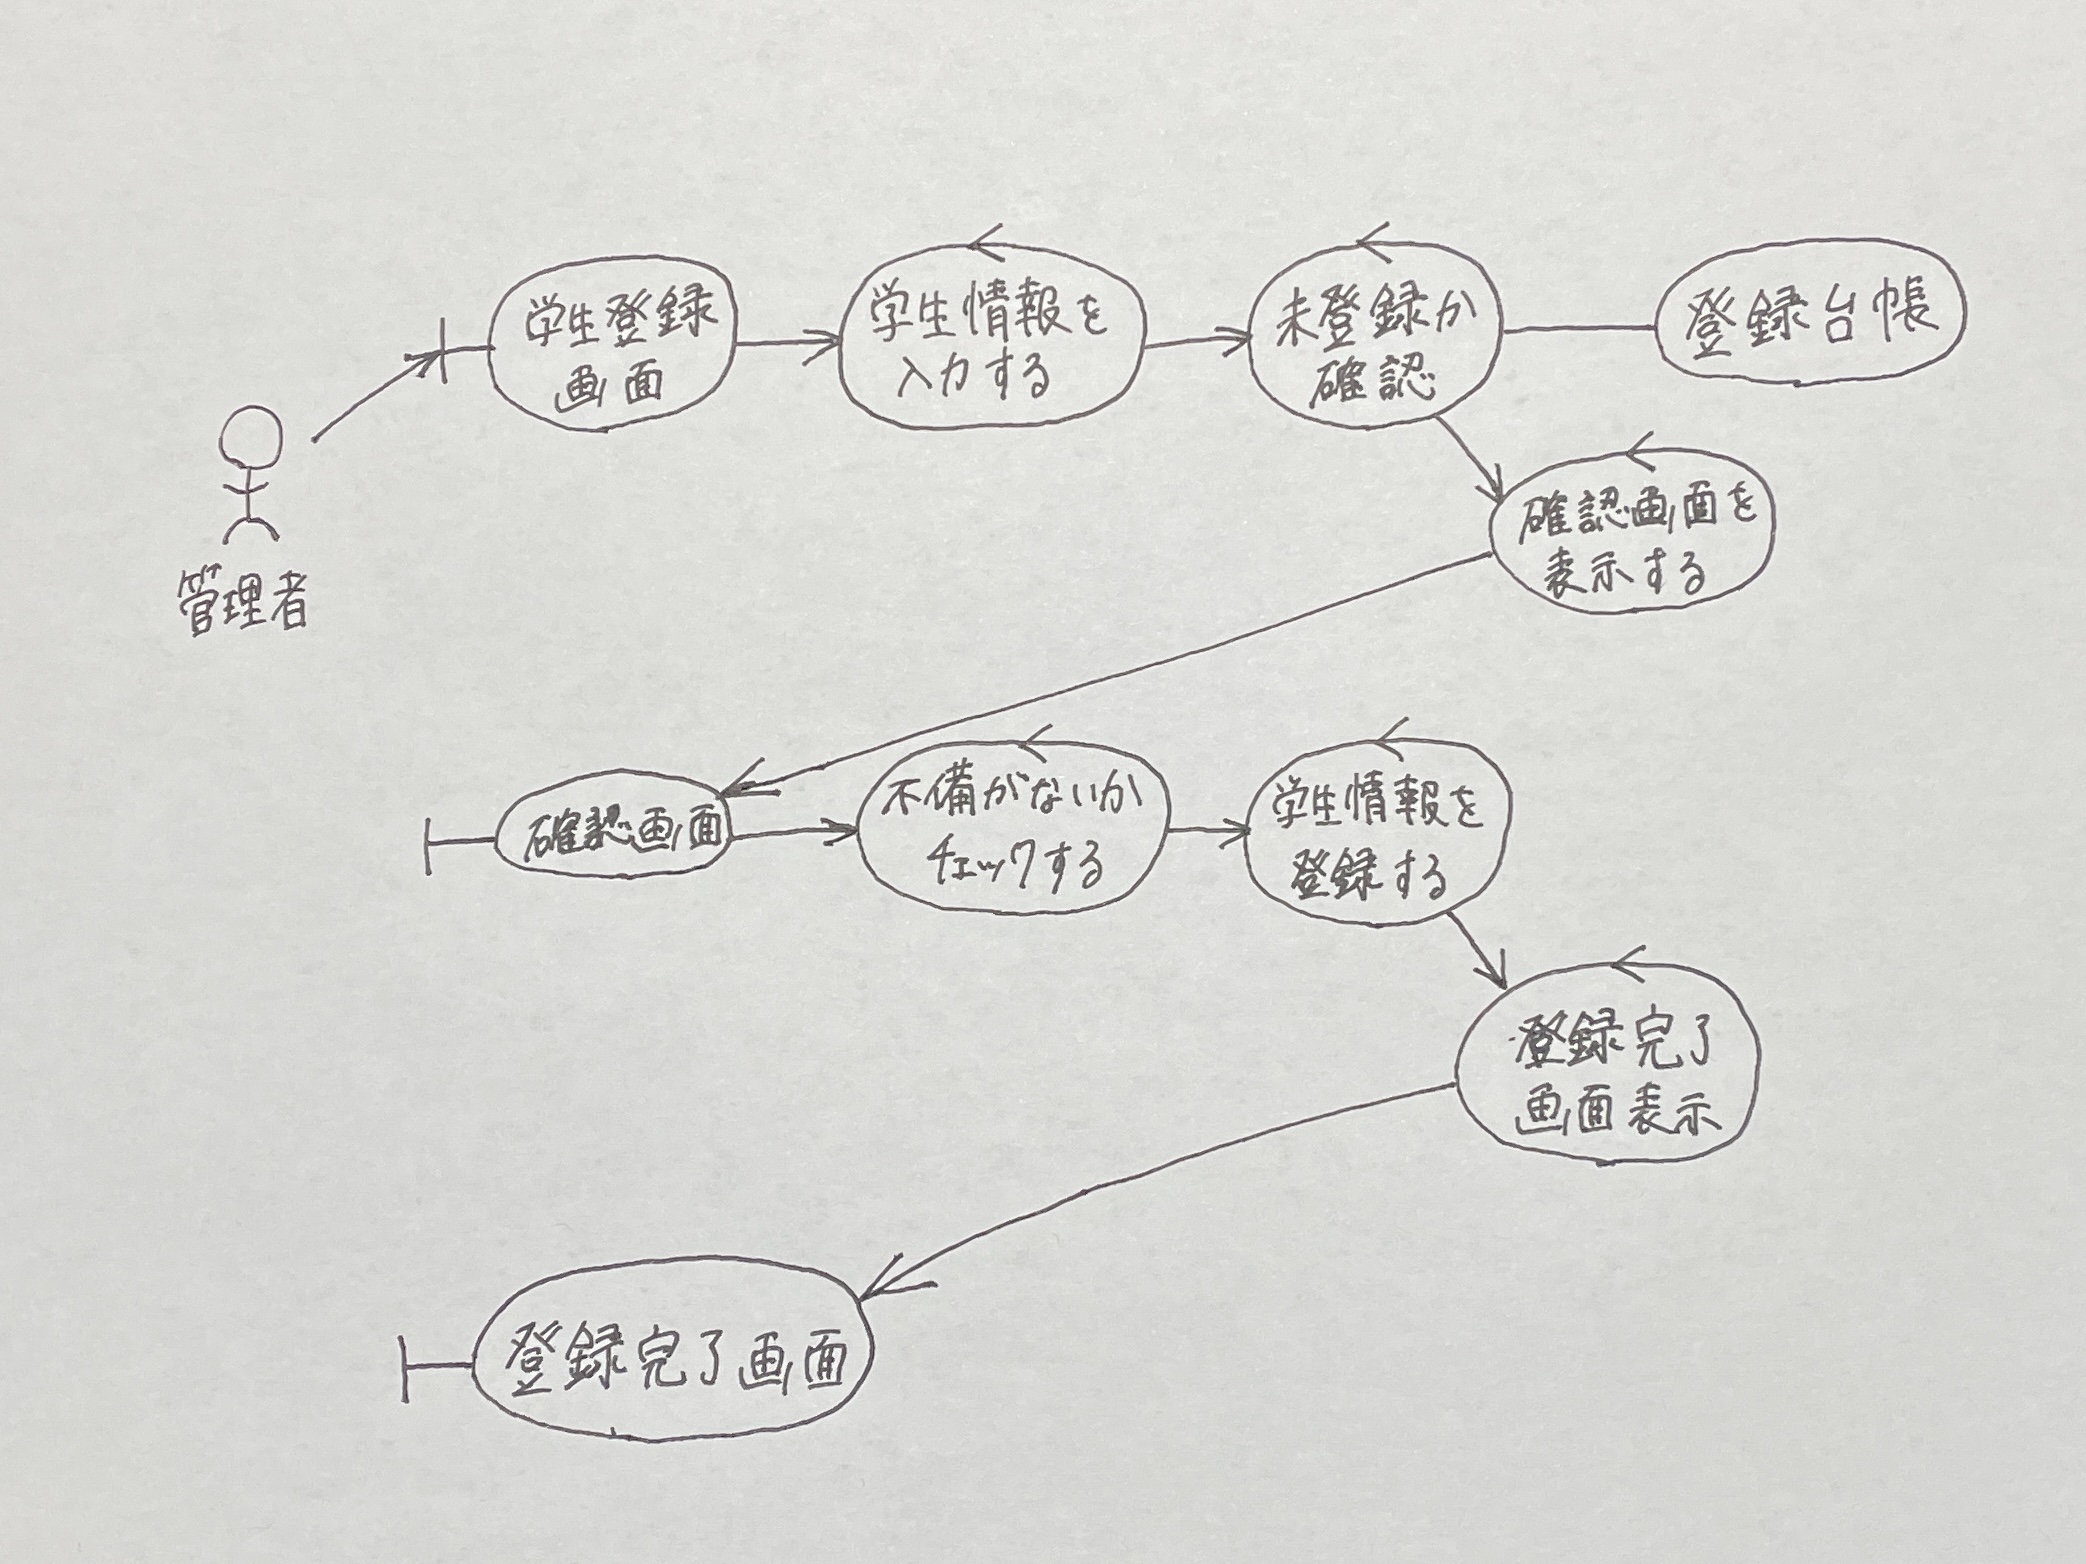 学生登録
画面
学生情報を
入力する
未登録か
確認
登録台帳
管理者
確認画面を
表示する
確認画面
不備がないか
チェックする
学生情報を
登録する
登録完了
画面表示
登録完了画面